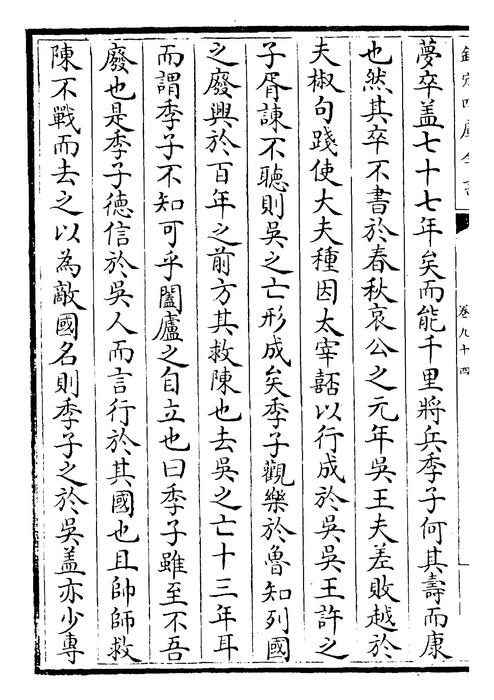 欽定四庫全書
卷九十四
夢卒盖七十七年矣而能千里將兵季子何其壽而康
也然其卒不書於春秋哀公之元年吳王夫差敗越於
夫椒句踐使大夫種因太宰嚭以行成於吳吳王許之
子胥諫不聽則吳之亡形成矣季子觀樂於魯知列國
之廢興於百年之前方其救陳也去吳之亡十三年耳
而謂季子不知可乎闔廬之自立也曰季子雖至不吾
廢也是季子德信於吳人而言行於其國也且帥師救
陳不戰而去之以為敵國名則季子之於吳盖亦少專